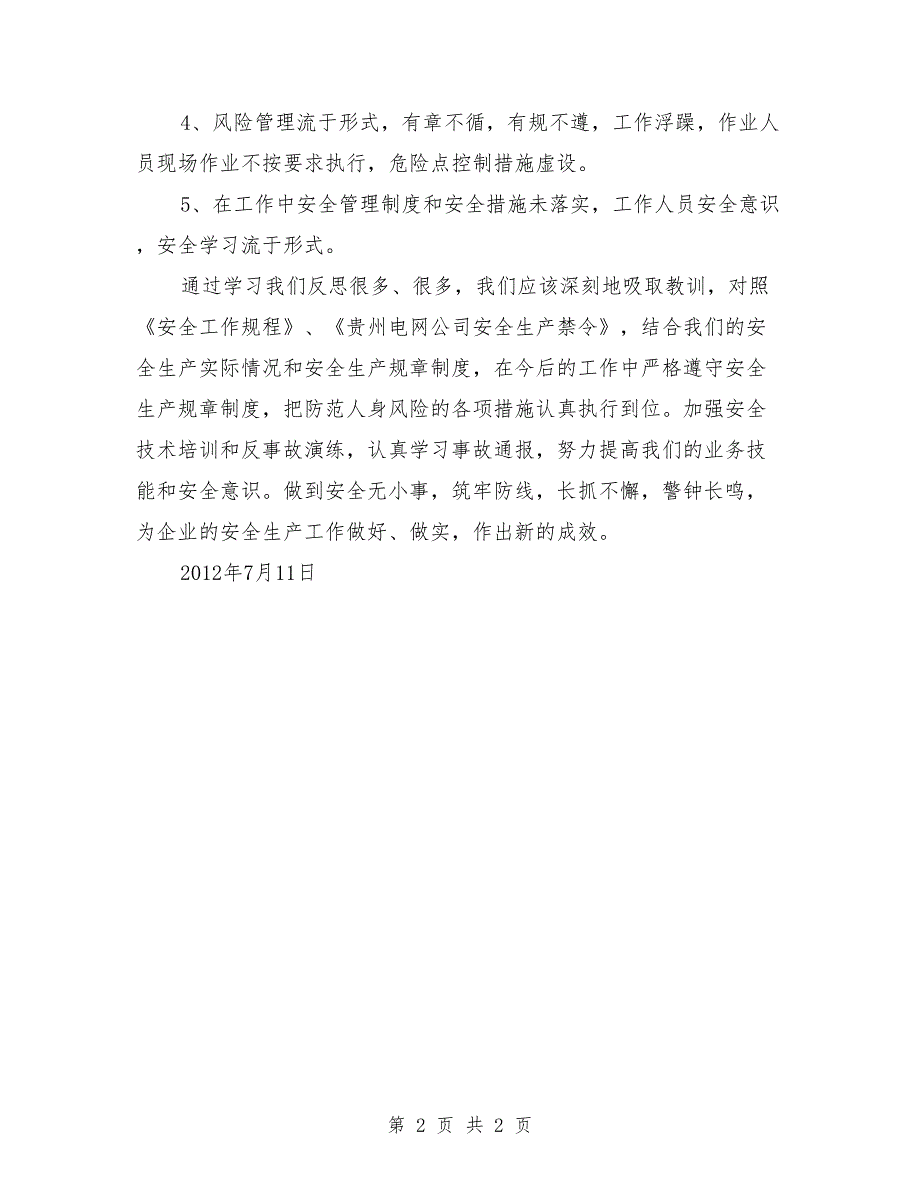 4、风险管理流于形式，有章不循，有规不遵，工作浮躁，作业人
员现场作业不按要求执行，危险点控制措施虚设。
5、在工作中安全管理制度和安全措施未落实，工作人员安全意识
，安全学习流于形式。
通过学习我们反思很多、很多，我们应该深刻地吸取教训，对照
《安全工作规程》、《贵州电网公司安全生产禁令》，结合我们的安
全生产实际情况和安全生产规章制度，在今后的工作中严格遵守安全
生产规章制度，把防范人身风险的各项措施认真执行到位。加强安全
技术培训和反事故演练，认真学习事故通报，努力提高我们的业务技
能和安全意识。做到安全无小事，筑牢防线，长抓不懈，警钟长鸣，
为企业的安全生产工作做好、做实，作出新的成效。
2012年7月11日
第 2 页 共 2 页